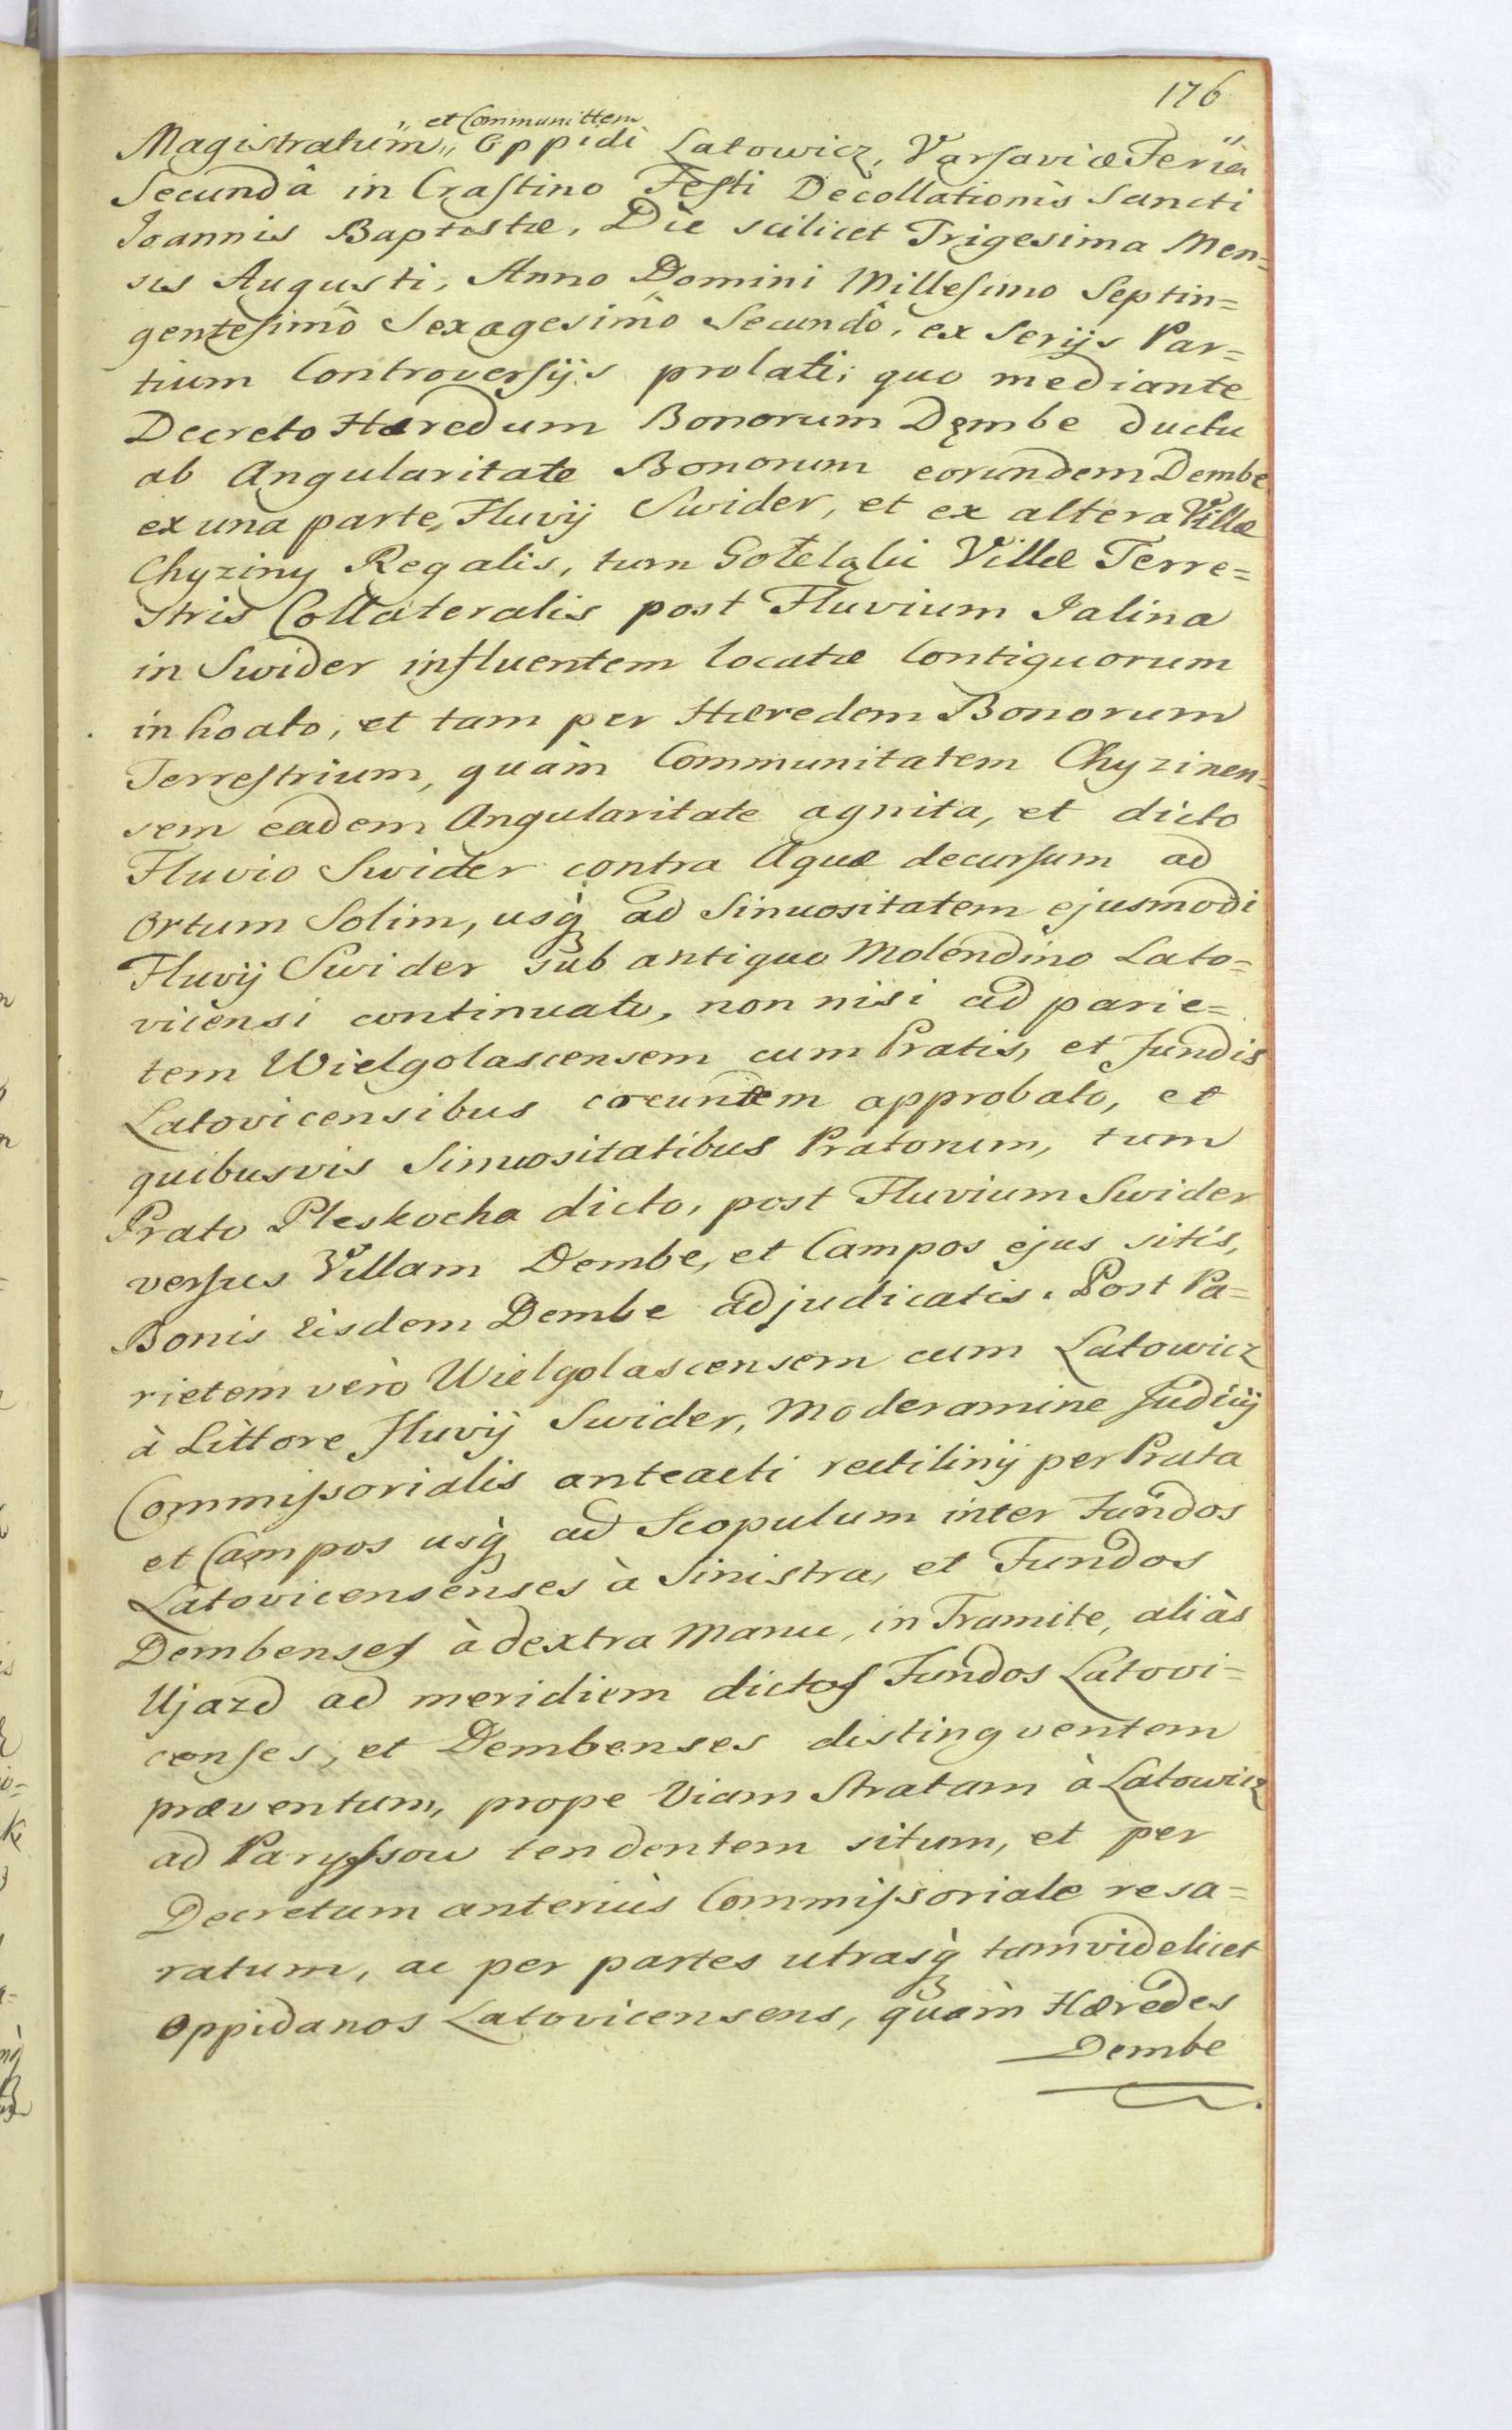 176
et Communittem
Magistratum„ Oppidi Latowicz, Varsaviæ Feriâ
Secundâ in Crastino Festi Decollationis Sancti
Joannis Baptistæ, Die scilicet Trigesima Men=
sis Augusti, Anno Domini Millesimo Septin=
gentesimô Sexagesimô Secundô, ex Serijs Par=
tium Controversijs prolati; quo mediante
Decreto Hæredum Bonorum Dęmbe ductu
ab Angularitate Bonorum eorundem Dembe
ex una parte, Fluvij Swider, et ex altera Villæ
Chyziny Regalis, tum Goteląbi Villæ Terre=
stris Collateralis post Fluvium Jalina
in Swider influentem locatæ Contiguorum
inhoato, et tam per Hæredem Bonorum
Terrestrium, quàm Communitatem Chyzinen=
sem eadem Angularitate agnita, et dicto
Fluvio Swider contra Aquæ decursum ad
Ortum Solim, usq̀ ad Sinuositatem ejusmodi
Fluvij Swider sub antiquo Molendino Lato=
vicensi continuato, non nisi ad parie=
tem Wielgolascensem cum Pratis, et Fundis
Latovicensibus coeuntem approbato, et
quibusvis Sinuositatibus Pratorum, tum
Prato Pleskocha dicto, post Fluvium Swider
versus Villam Dembe, et Campos ejus sitis,
Bonis Eisdem Dembe adjudicatis. Post Pa=
rietem verò Wielgolascensem cum Latowicz
à Littore Fluvij Swider, Moderamine Judicij
Commissorialis anteacti rectilinij per Prata
et Campos usq̀ ad Scopulum inter Fundos
Latovicensenses à Sinistra, et Fundos
Dembenses à dextra Manu, in Tramite, aliàs
Ujazd ad meridiem dictos Fundos Latovi=
censes, et Dembenses distingventem
præventum, prope Viam Stratam à Latowicz
ad Paryssow tendentem situm, et per
Decretum anteriùs Commissoriale resa=
ratum, ac per partes utrasq̀ tam videlicet
Oppidanos Latovicensens, quàm Hæredes
Dembe